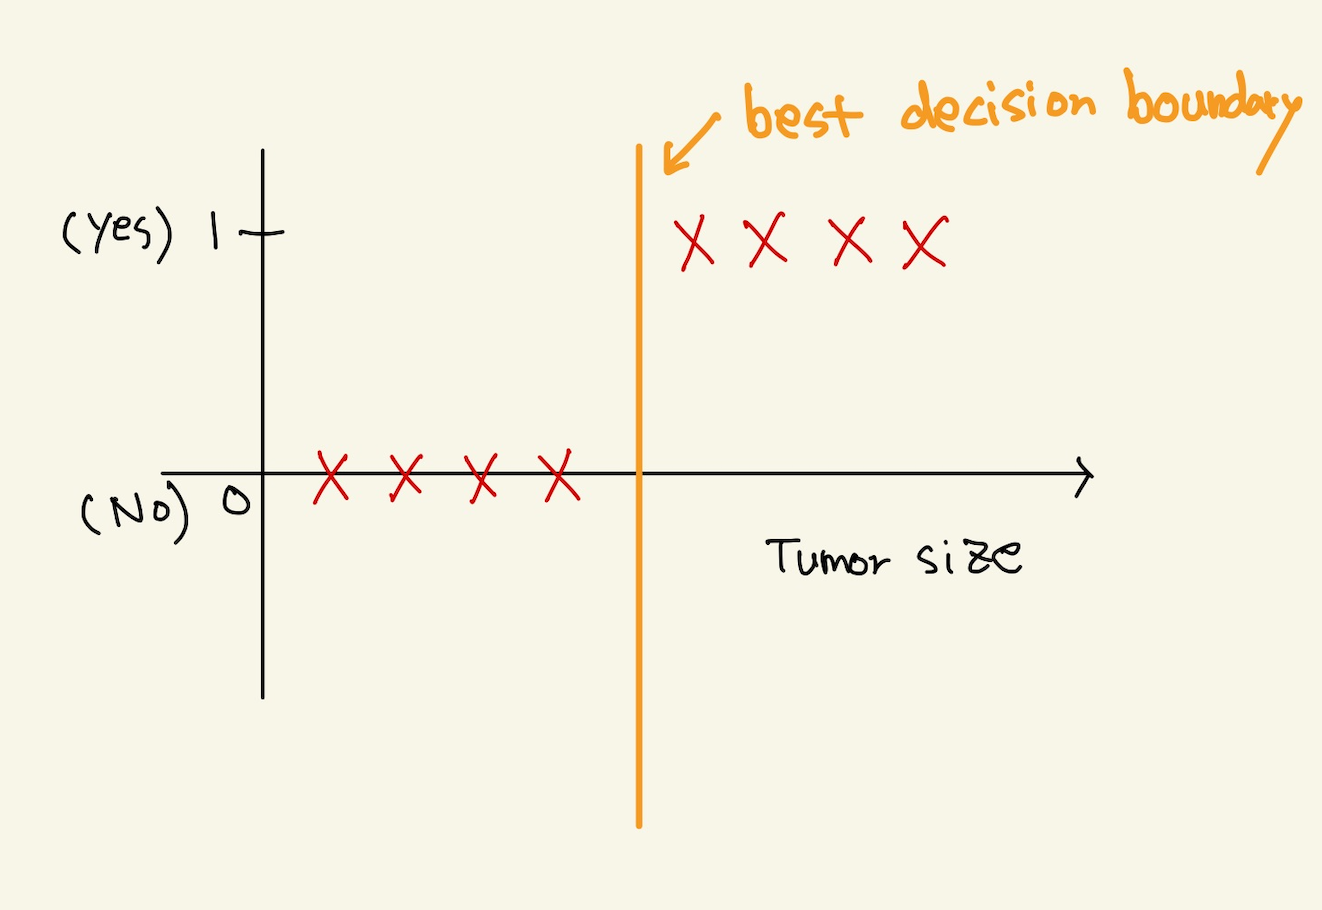 best decision boundary
(Yes) 1
(No) 0
Tumor size